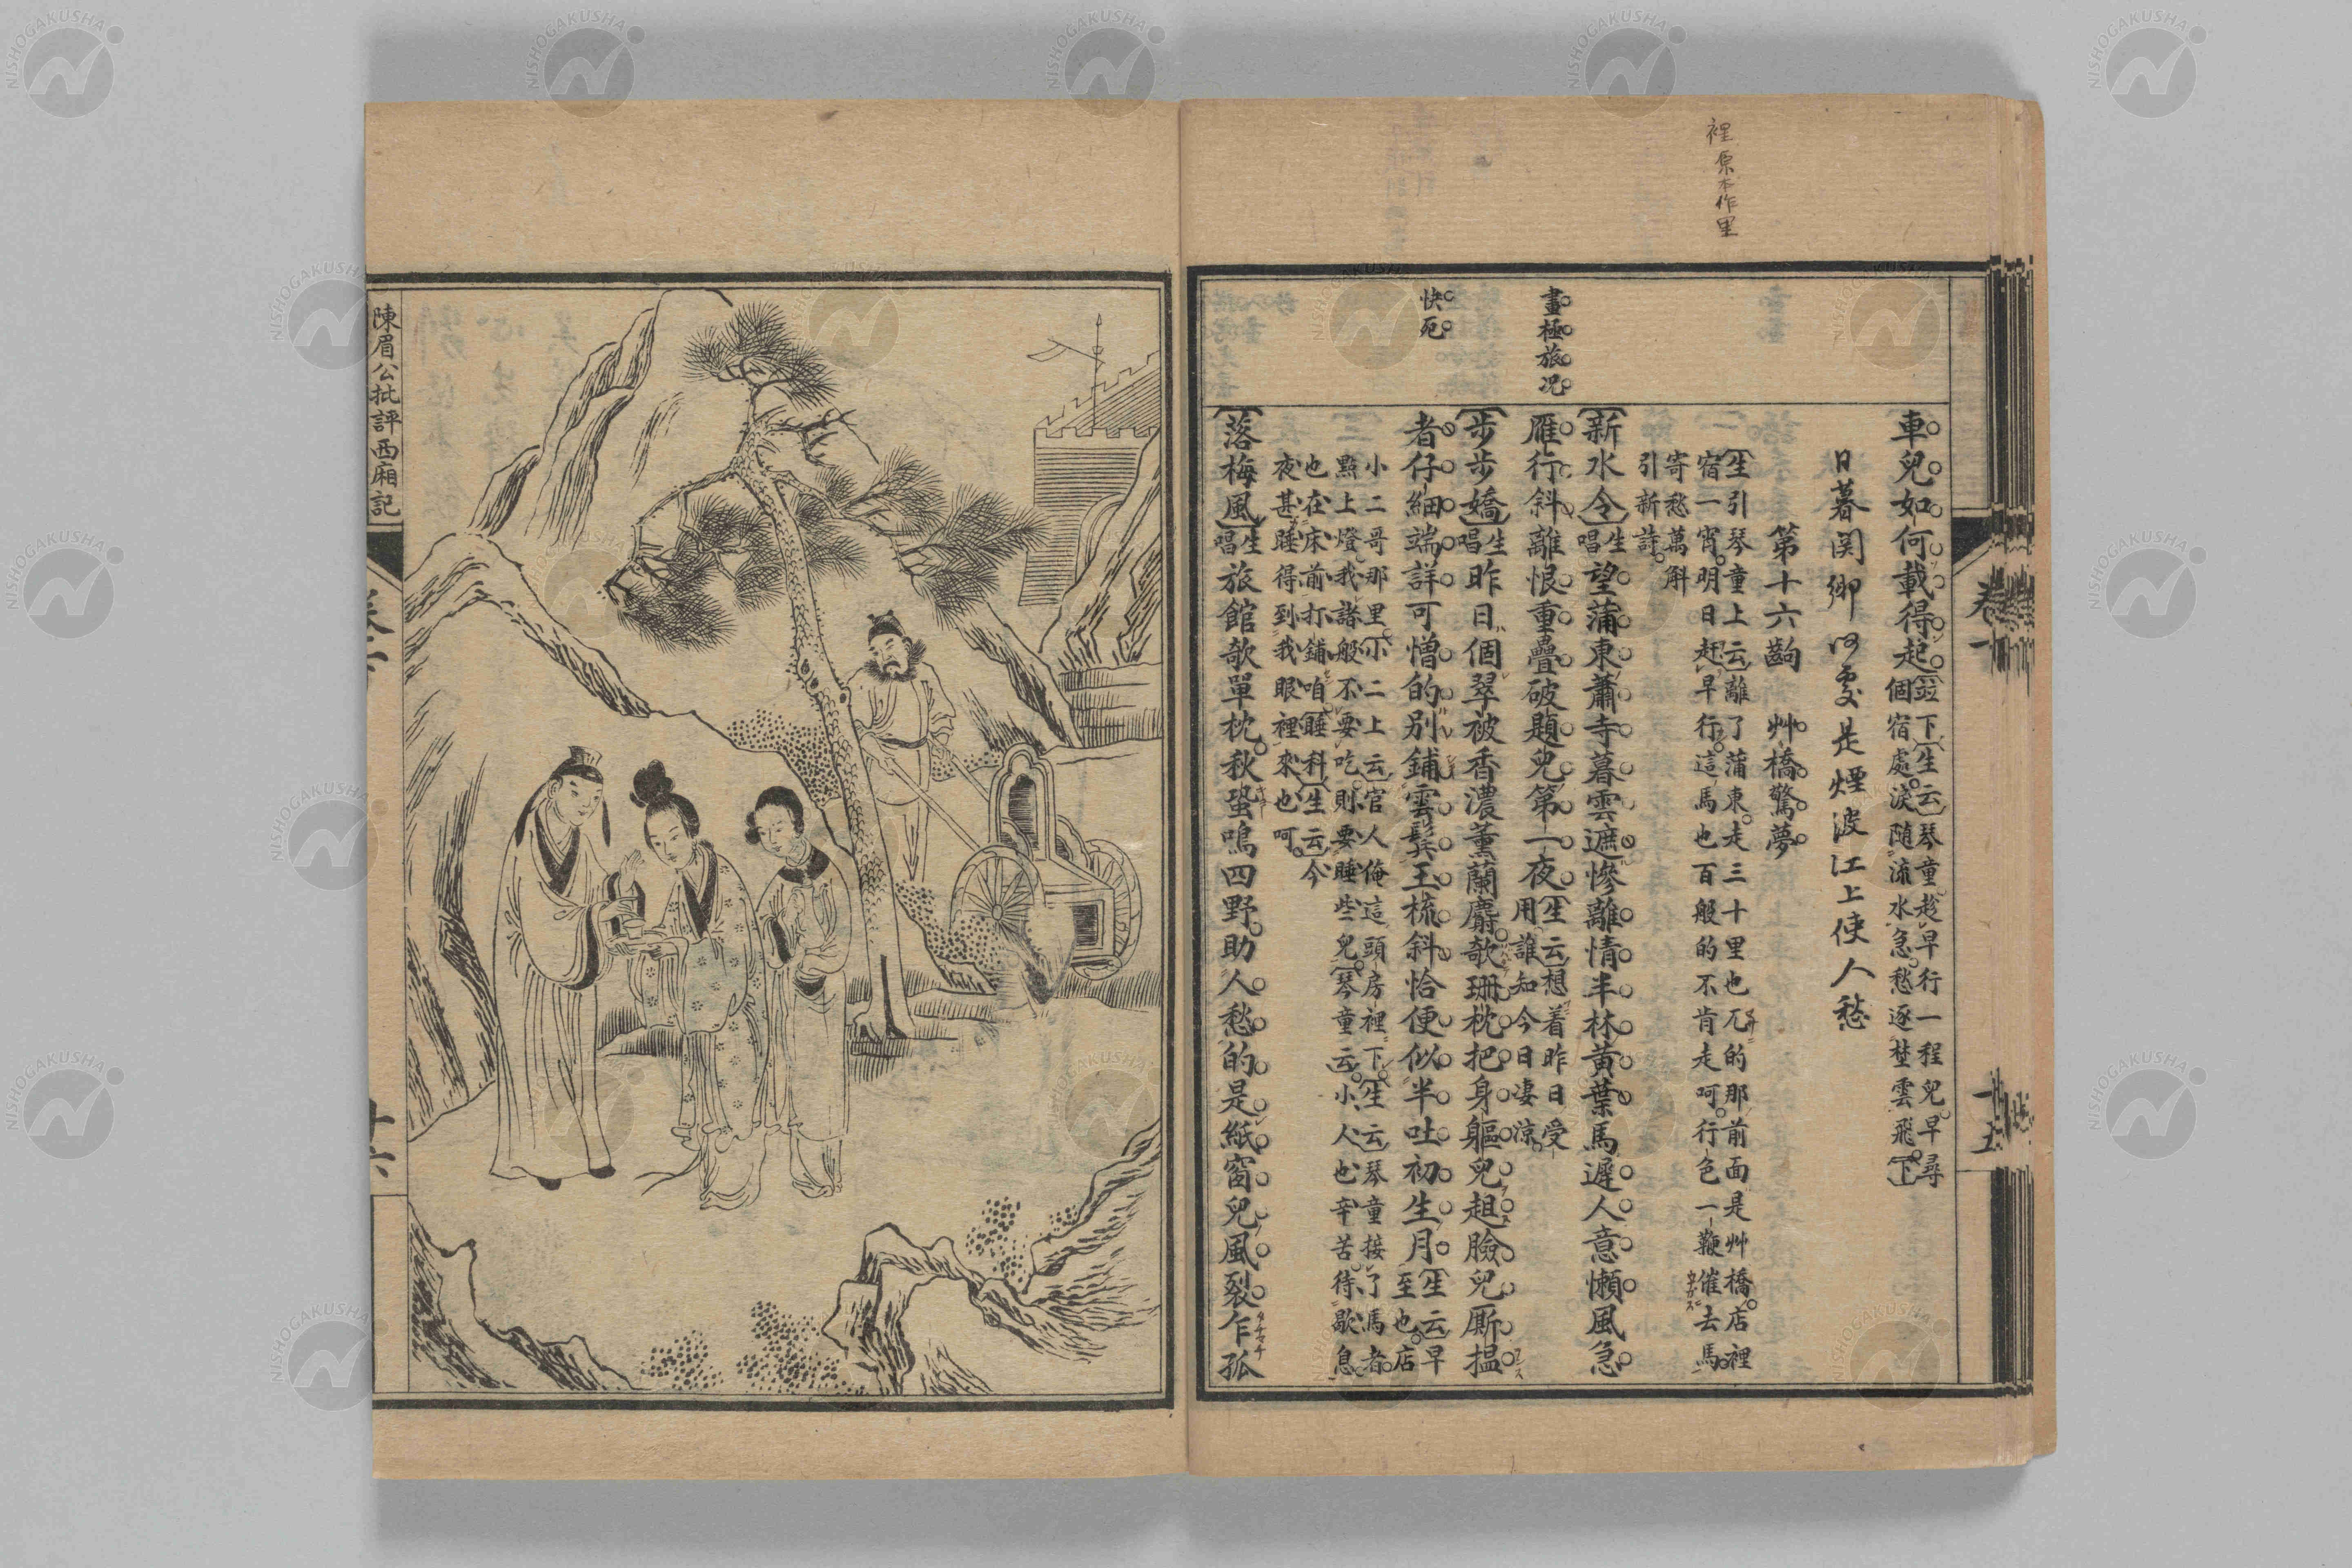 裡原本作里
畫極旅况
快死
車兒如何載得起〔竝下〕〔生云〕琴童趁早行一程兒早尋
個宿處淚随流水急愁逐埜雲飛〔下〕
日暮関鄉何處是煙波江上使人愁
第十六齣　艸橋驚夢
〔生引琴童上云〕離了蒲東走三十里也兀的那前面是艸橋店裡
宿一宵明日赶早行這馬也百般的不肯走呵行色一鞭催去馬
寄愁萬斛
引新詩
〔新水令〕〔生唱〕望蒲東蕭寺暮雲遮慘離情半林黃葉馬遲人意懶風急
雁行斜離恨重疊破題兒第一夜〔生云〕想着昨日受
用誰知今日凄涼
〔步步嬌〕〔生唱〕昨日個翠被香濃薰蘭麝欹珊枕把身軀兒趄臉兒厮揾
者仔細端詳可憎的別鋪雲鬂玉梳斜恰便似半吐初生月〔生云〕早
至也店
小二哥那里〔小二上云〕官人俺這頭房裡下〔生云〕琴童接了馬者
點上燈我諸般不要吃則要睡些兒〔琴童云〕小人也辛苦待歇息
也在床前打鋪咱〔睡科〕〔生云〕今
夜甚睡得到我眼裡來也呵
〔落梅風〕〔生唱〕旅館欹單枕秋蛩鳴四野助人愁的是紙窗兒風裂乍孤
卷下
十五
陳眉公批評西廂記
十六
NISHOGAKUSHA